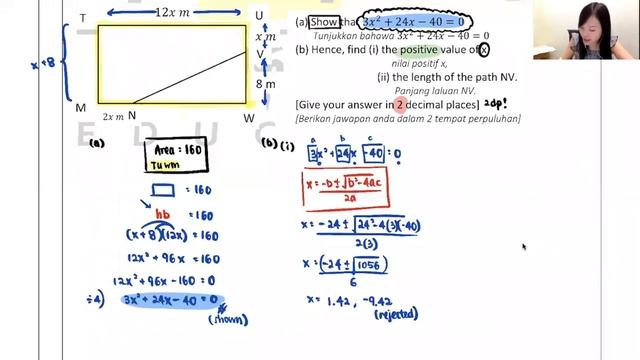 T
12x m
U
x m
V
8 m
x+8
M
2x m
N
W
(a) Show that 3x² + 24x − 40 = 0
Tunjukkan bahawa 3x² + 24x − 40 = 0
(b) Hence, find (i) the positive value of x
nilai positif x,
(ii) the length of the path NV.
Panjang laluan NV.
[Give your answer in 2 decimal places] 2dp!
[Berikan jawapan anda dalam 2 tempat perpuluhan]
E D U
(a)
Area = 160
TUWM
= 160
hb = 160
(x+8)(12x) = 160
12x² + 96x = 160
12x² + 96x − 160 = 0
÷4) 3x² + 24x − 40 = 0
(shown)
(b) (i)
a b c
3x² + 24x − 40 = 0
x = −b ± √b² − 4ac
2a
x = −24 ± √24² − 4(3)(−40)
2(3)
x = (−24 ± √1056)
6
x = 1.42 , −9.42
(rejected)